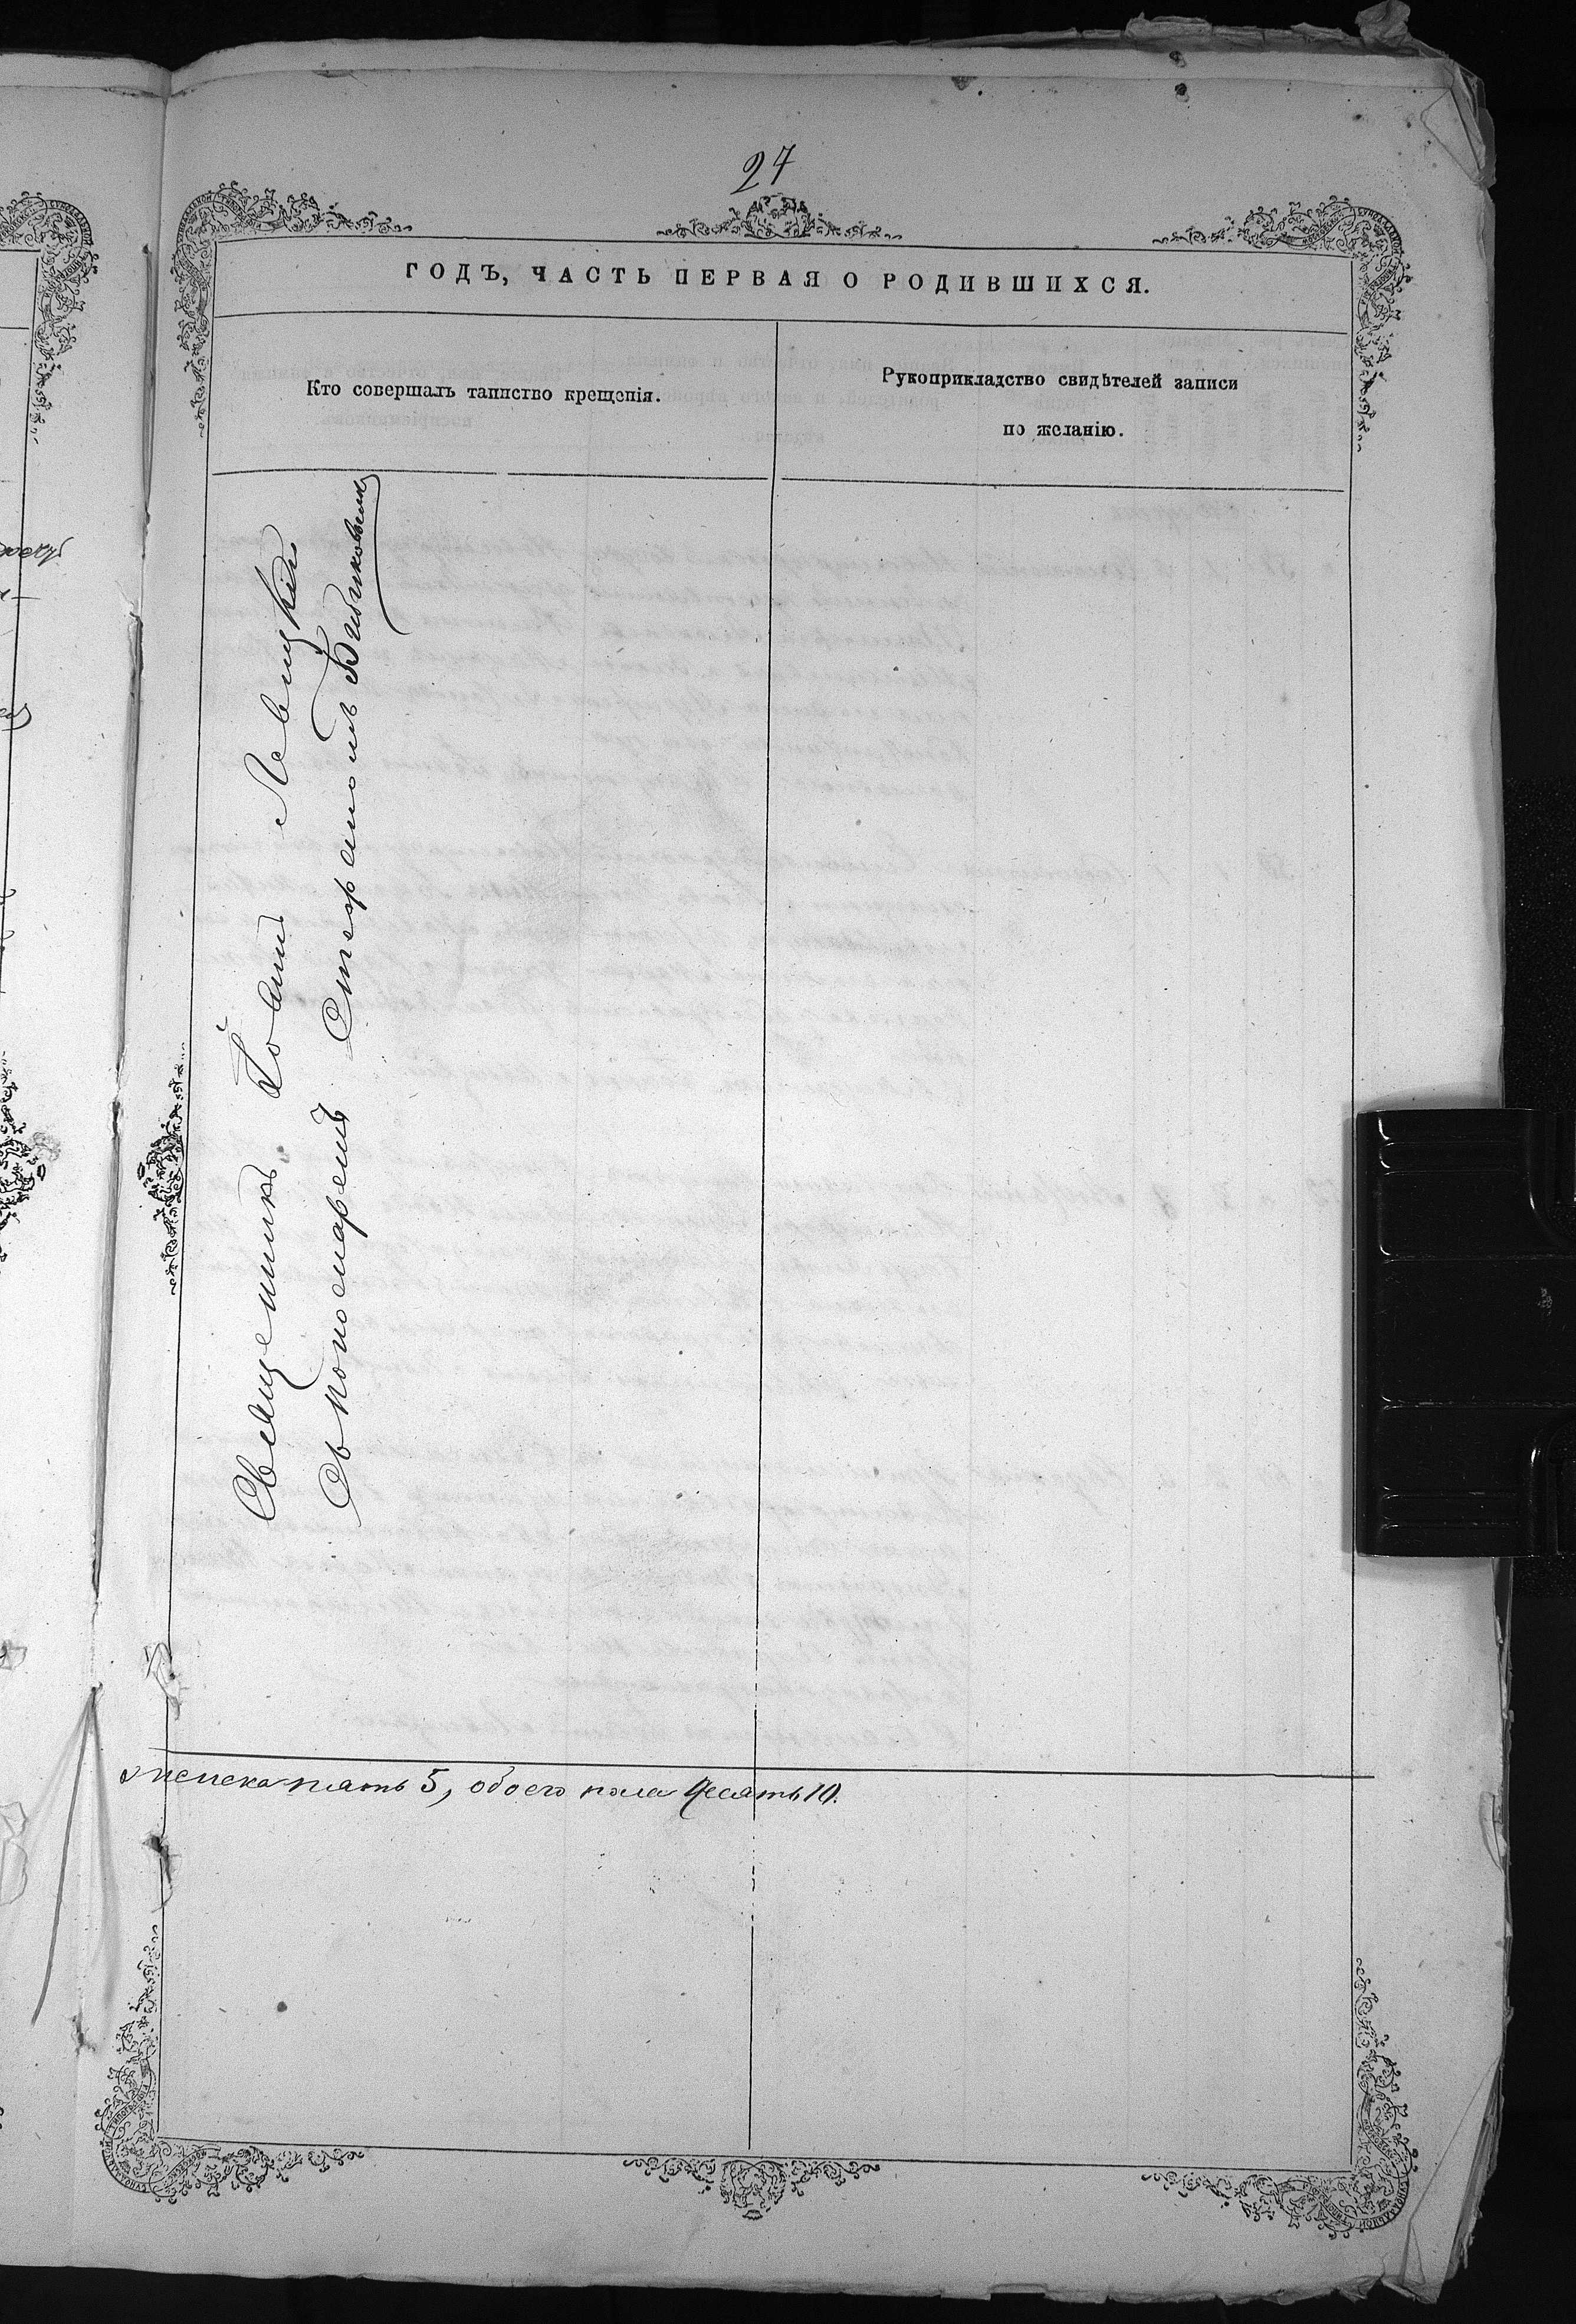 27
ГОДЪ, ЧАСТЬ ПЕРВАЯ О РОДИВШИХСЯ.
Кто совершалъ таинство крещенія.
Рукоприкладство свидѣтелей записи
по желанію.
Священникъ Іоаннъ Левицкій
Съ пономаремъ Стефаномъ Бибиковымъ
женска пять 5, обоего пола десять 10.